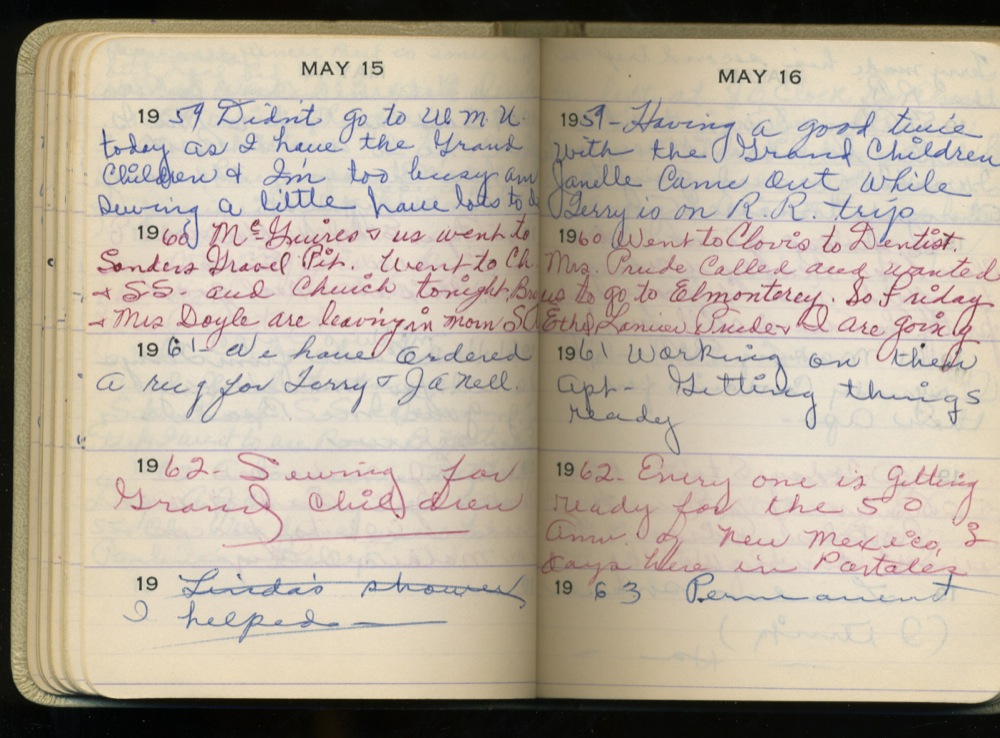 MAY 15
1959 Didn't go to W.M.U.
today as I have the Grand
Children & I'm too busy am
Sewing a little have lots to do
1960 McGuires & us went to
Sanders Gravel Pit. Went to Ch.
& S.S. and Church tonight
& Mrs Doyle are leaving in morn
1961 - We have ordered
a rug for Terry & JaNell.
1962 - Sewing for
Grand Children
19 Linda's shower
I helped
MAY 16
1959 - Having a good time
with the Grand Children
Janelle Came out while
Terry is on R.R. trip
1960 Went to Clovis to Dentist.
Mrs. Prude Called and wanted
us to go to Elmonterey. So Friday
Ethel Lanier Prude & I are going
1961 Working on their
apt - Getting things
ready
1962 - Every one is getting
ready for the 50
Anv. of New Mexico, 3
days here in Portales
1963 Permanent